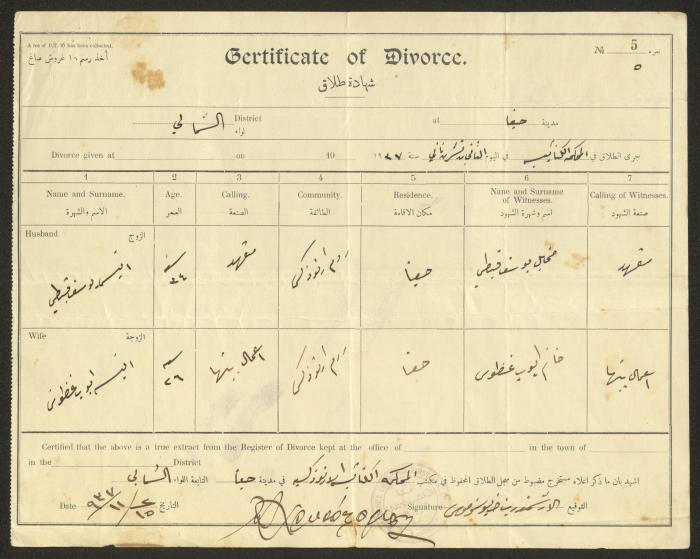 A fee of P.T. 10 has been collected.
أخذ رسم ١٠ غروش صاغ
№ 5 نمرة
٥
Certificate of Divorce.
شهادة طلاق
الشمالي District لواء at حيفا مدينة
Divorce given at on 19 ١٩٣٧ سنة تشرين ثاني في اليوم المحكمة الكنائسية جرى الطلاق في
1 2 3 4 5 6 7
Name and Surname. Age. Calling. Community. Residence. Name and Surname of Witnesses. Calling of Witnesses.
الاسم والشهرة العمر الصنعة الطائفة مكان الاقامة اسم وشهرة الشهود صنعة الشهود
Husband الزوج
يوسف قبطي ٣٤ سنة متعهد روم ارثوذكس حيفا يوسف قبطي متعهد
Wife الزوجة
ايوب غطوس ٢٦ سنة اعمال بيتها روم ارثوذكس حيفا ايوب غطوس اعمال بيتها
Certified that the above is a true extract from the Register of Divorce kept at the office of in the town of
in the District
اشهد بان ما ذكر اعلاه مستخرج مضبوط من سجل الطلاق المحفوظ في مكتب المحكمة الكنائسية الارثوذكسية في مدينة حيفا التابعة اللواء الشمالي
Date ٩٣٧/١١/ التاريخ Signature التوقيع